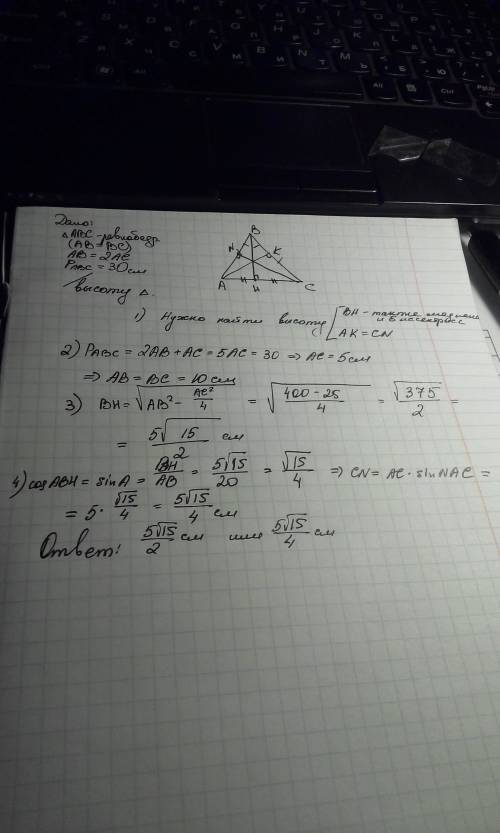 Дано:
△ ABC - равнобедр.
(AB = BC)
AB = 2AC
P_ABC = 30 см
высоту △.
B
N K
A H C
1) Нужно найти высоту [ BH - также медиана и биссектриса
AK = CN
2) P_ABC = 2AB + AC = 5AC = 30 ⇒ AC = 5 см
⇒ AB = BC = 10 см
3) BH = √(AB² - AC²/4) = √((400 - 25)/4) = √375/2 =
= 5√15/2 см
4) cos ABH = sin A = BH/AB = 5√15/20 = √15/4 ⇒ CN = AC · sin NAC =
= 5 · √15/4 = 5√15/4 см
Ответ: 5√15/2 см или 5√15/4 см